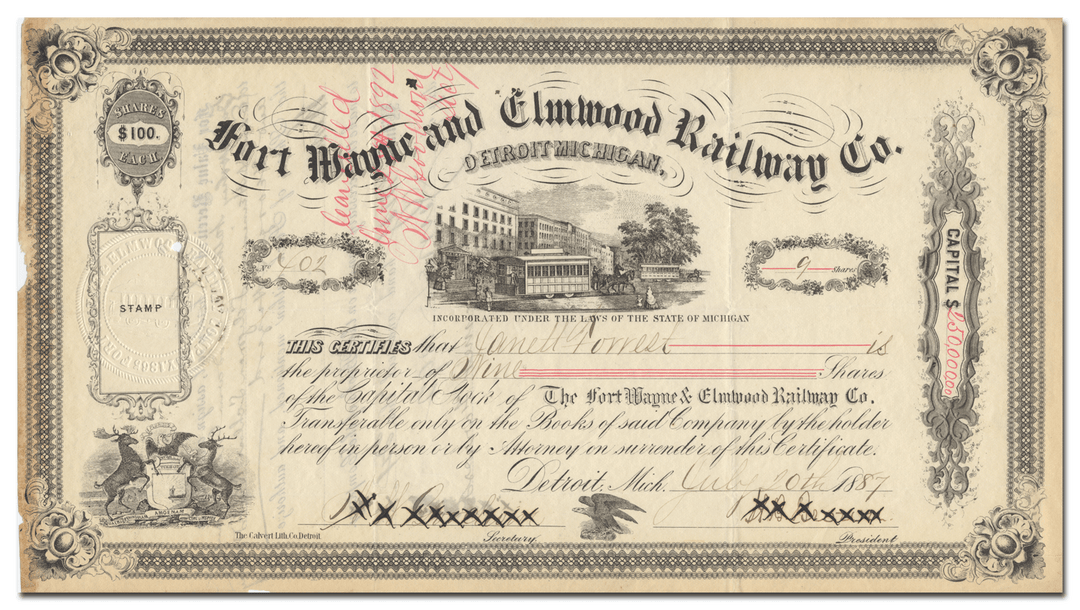 SHARES
$100.
EACH
Cancelled
1892
Fort Wayne and Elmwood Railway Co.
DETROIT MICHIGAN.
No 402
9 Shares
STAMP
CAPITAL $250,000.00
INCORPORATED UNDER THE LAWS OF THE STATE OF MICHIGAN
THIS CERTIFIES that Janett Forrest is
the proprietor of Nine Shares
of the Capital Stock of The Fort Wayne & Elmwood Railway Co.
Transferable only on the Books of said Company by the holder
hereof in person or by Attorney on surrender of this Certificate.
Detroit, Mich. July 20th 1887
Secretary.
President
The Calvert Lith. Co. Detroit